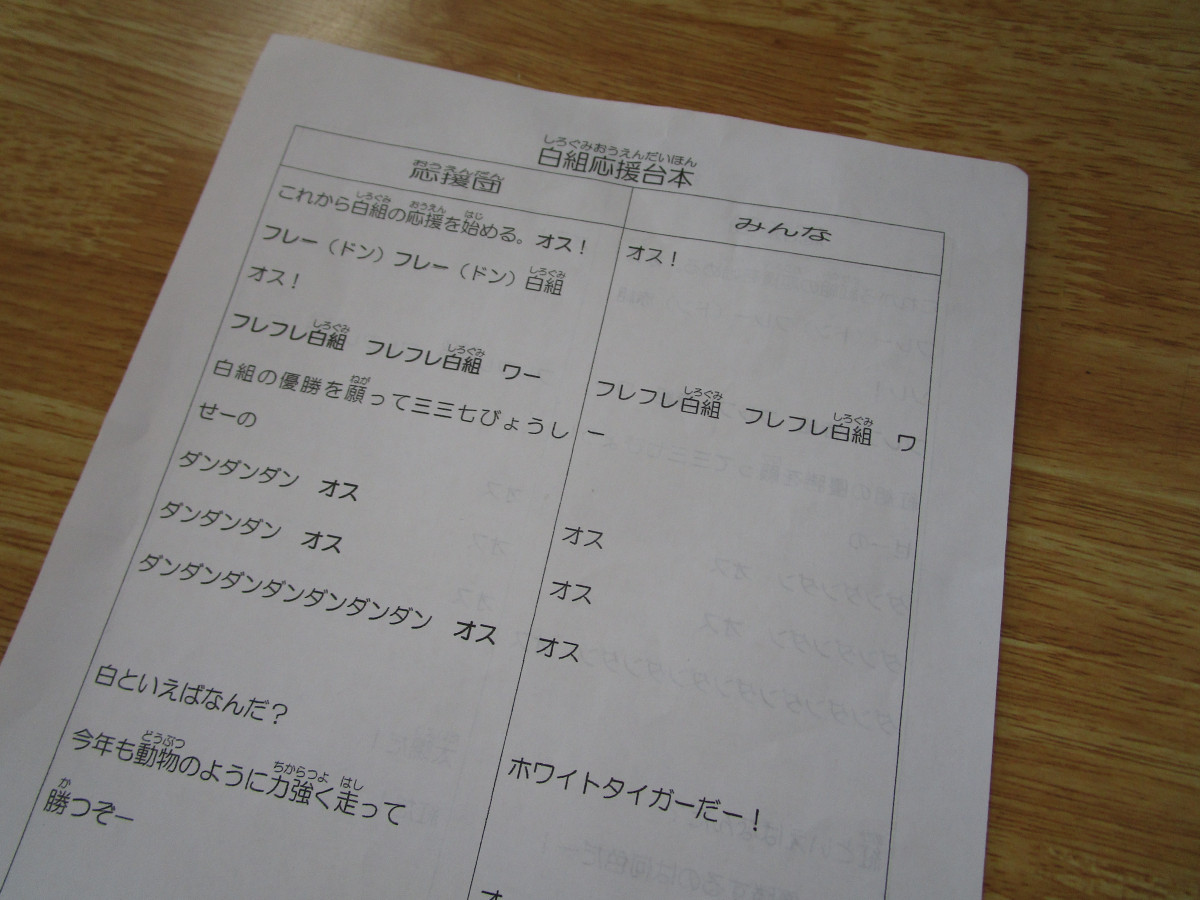 白組応援台本
応援団
みんな
これから白組の応援を始める。オス！
オス！
フレー（ドン）フレー（ドン）白組
オス！
フレフレ白組　フレフレ白組　ワー
フレフレ白組　フレフレ白組　ワ
ー
白組の優勝を願って三三七びょうし
せーの
ダンダンダン　オス
オス
ダンダンダン　オス
オス
ダンダンダンダンダンダンダン　オス
オス
白といえばなんだ？
ホワイトタイガーだー！
今年も動物のように力強く走って
勝つぞー